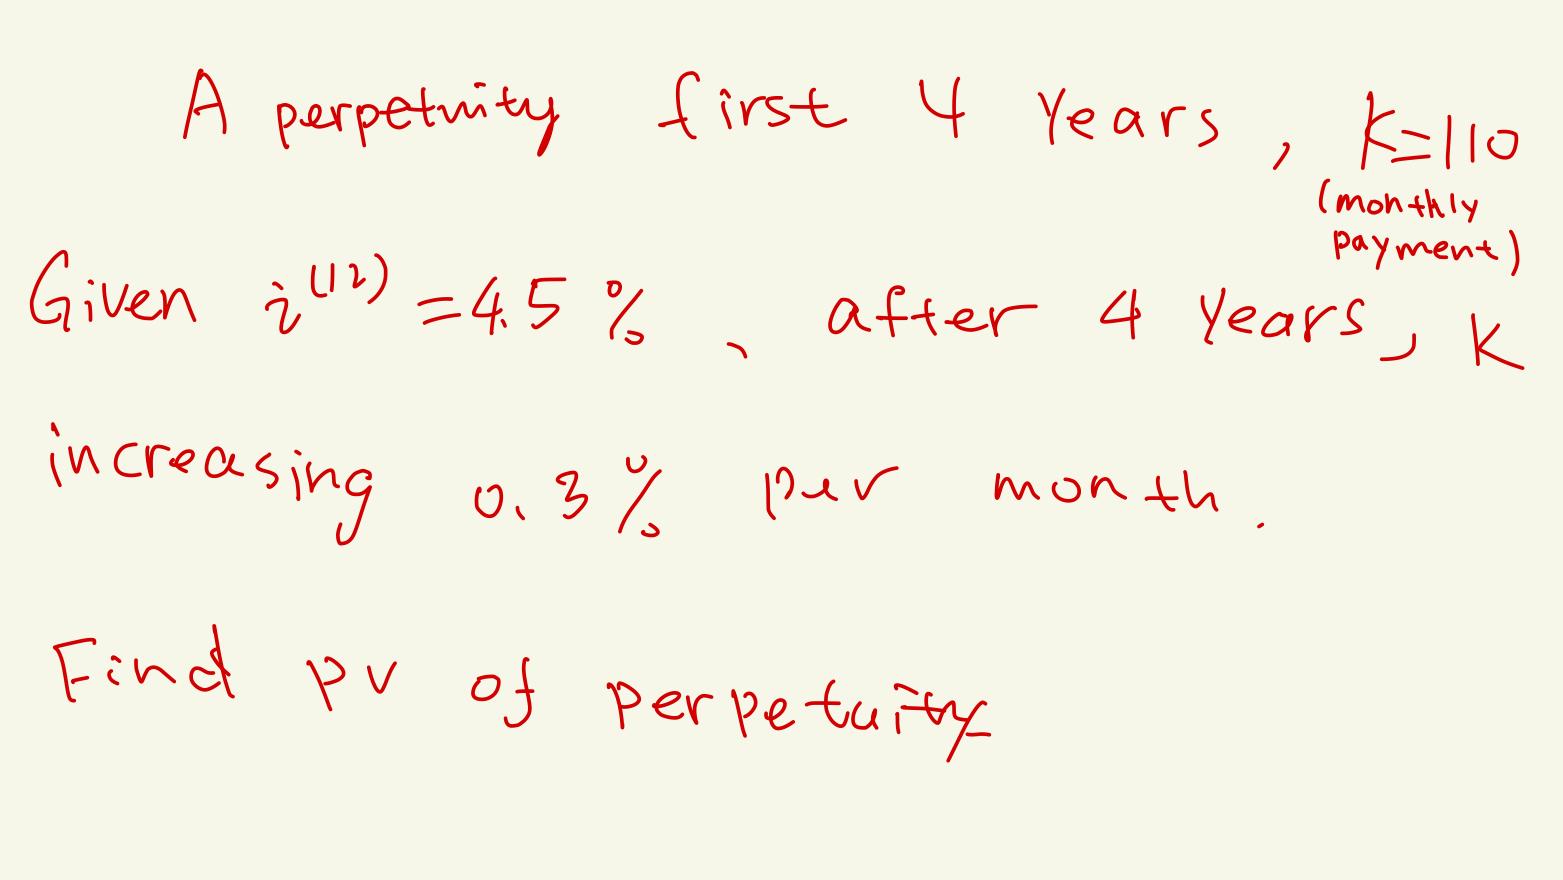 A perpetuity first 4 years, K=110
(monthly
payment)
Given i^(12) = 4.5%, after 4 years, K
increasing 0.3% per month.
Find pv of perpetuity